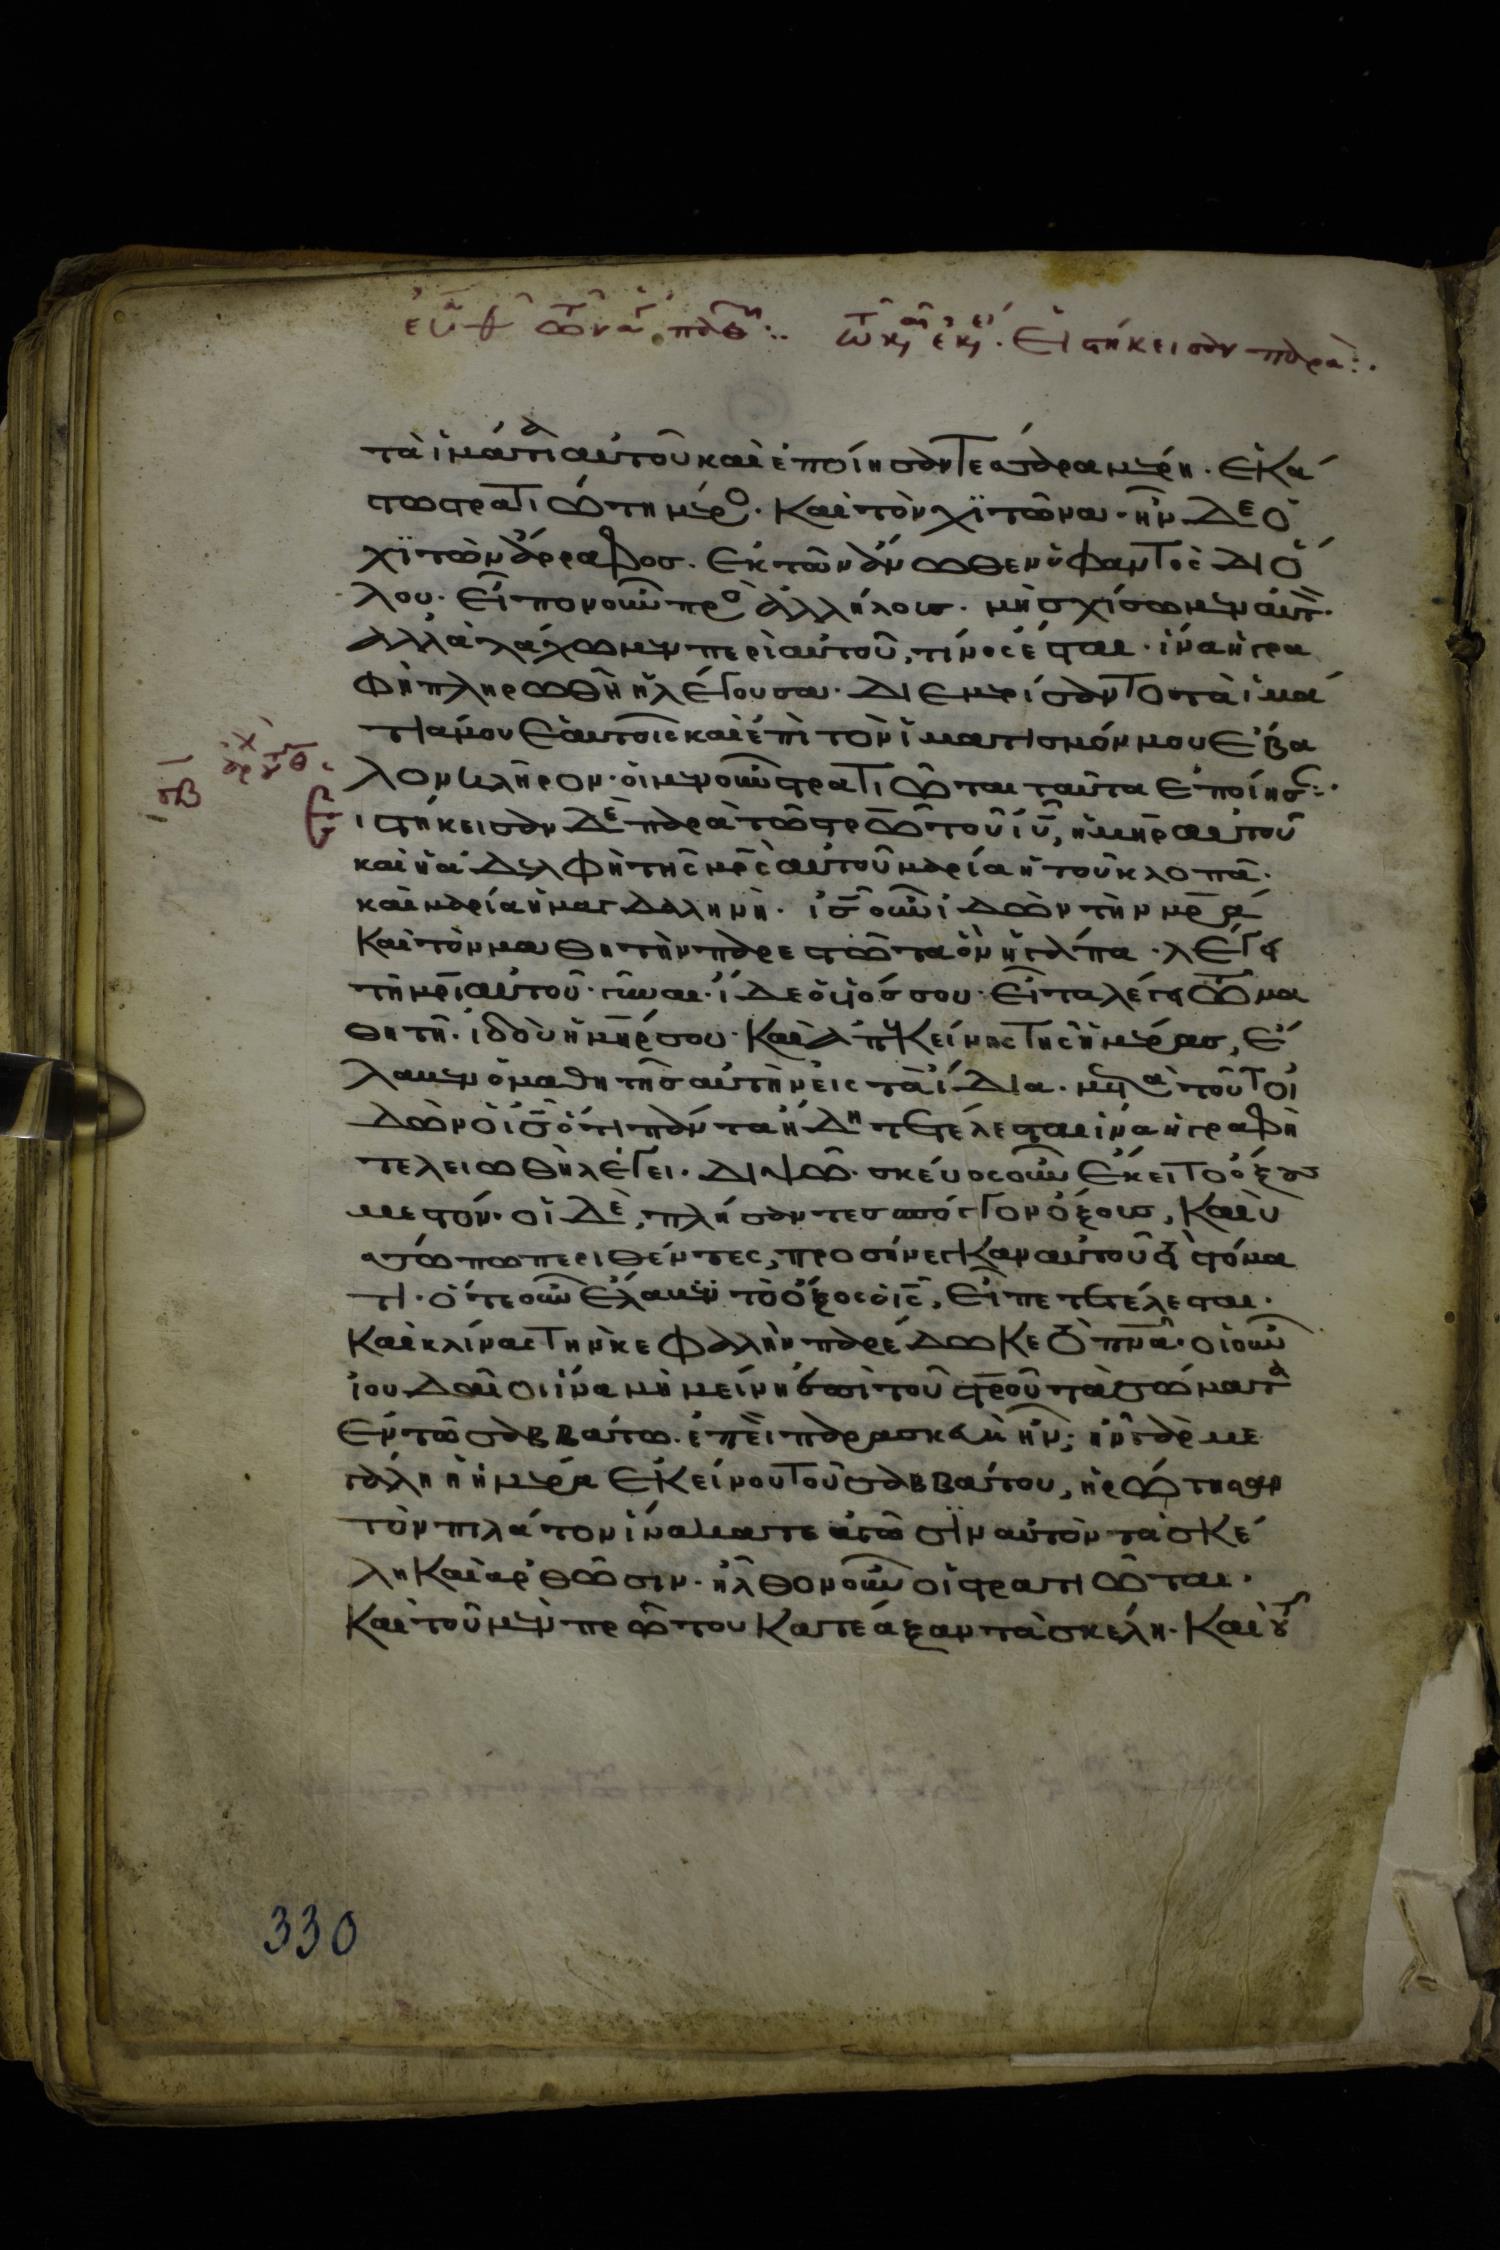 τὰ ἱμάτια αὐτοῦ καὶ ἐποίησαν τέσσαρα μέρη. ἑκά
στω στρατιώτη μέρος. καὶ τὸν χϊτῶνα. ἦν δὲ ὁ
χϊτὼν ἄρραφος. ἐκ τῶν ἄνωθεν ὑφαντὸς δι ὅ
λου. εἶπον οὖν πρὸς ἀλλήλους. μὴ σχίσωμεν αὐτὸν.
ἀλλὰ λάχωμεν περὶ αὐτοῦ, τίνος ἔσται. ἵνα ἡ γρα
φὴ πληρωθῆ ἡ λέγουσα. διεμερίσαντο τὰ ἱμά
τια μου ἑαυτοῖς καὶ ἐπὶ τὸν ἱματισμόν μου ἔβα
λον κλῆρον. οἱ μὲν οὖν στρατιῶται ταῦτα ἐποίησαν:
ιστήκεισαν δὲ παρὰ τῶ στρῶ τοῦ ἰῦ, ἡ μηρ αὐτοῦ
καὶ ἡ ἀδελφὴ τῆς μρς αὐτοῦ μαρία ἡ τοῦ κλοπᾶ.
καὶ μαρία ἡ μαγδαληνὴ. ις οὖν ἰδὼν τὴν μρα
καὶ τὸν μαθητὴν παρεστῶτα ὃν ἠγάπα. λέγει
τῆ μρι αὐτοῦ. γύναι. ἴδε ὁ υἱός σου. εἶτα λέγει τῶ μα
θητῆ. ἰδοὺ ἡ μηρ σου. καὶ ἀπ ἐκείνης τῆς ἡμέρας, ἔ
λαβεν ὁ μαθητὴς αὐτὴν εἰς τὰ ἴδια. μετὰ τοῦτο ἰ
δὼν ὁ ις ὅτι πάντα ἤδη τετέλεσται ἵνα ἡ γραφὴ
τελειωθῆ λέγει. διψῶ. σκεῦος οὖν ἔκειτο ὄξους
μεστόν. οἱ δὲ, πλήσαντες σπόγγον ὄξους, καὶ ὑ
σσώπω περιθέντες, προσήνεγκαν αὐτοῦ τῶ στόμα
τι. ὅτε οὖν ἔλαβεν τὸ ὄξος ὁ ις, εἶπε τετέλεσται.
καὶ κλίνας τὴν κεφαλὴν παρέδωκε τὸ πνα. οἱ οὖν
ἰουδαῖοι ἵνα μὴ μείνη ἐπὶ τοῦ στροῦ τὰ σώματα
ἐν τῶ σαββάτω. ἐπεὶ παρασκευὴ ἦν. ἦν γὰρ με
γάλη ἡ ἡμέρα ἐκείνου τοῦ σαββάτου, ἠρώτησαν
τὸν πιλάτον ἵνα κατεάγωσϊν αὐτὸν τὰ σκέ
λη καὶ ἀρθῶσιν. ἦλθον οὖν οἱ στρατιῶται.
καὶ τοῦ μὲν πρώτου κατέαξαν τὰ σκέλη. καὶ τοῦ
330